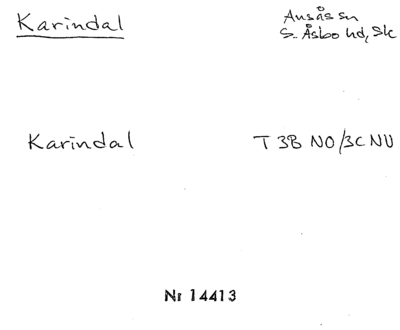 Karindal
Ausås sn
S. Åsbo hd, Sk
Karindal
T 3B NO/3C NV
Nr 14413